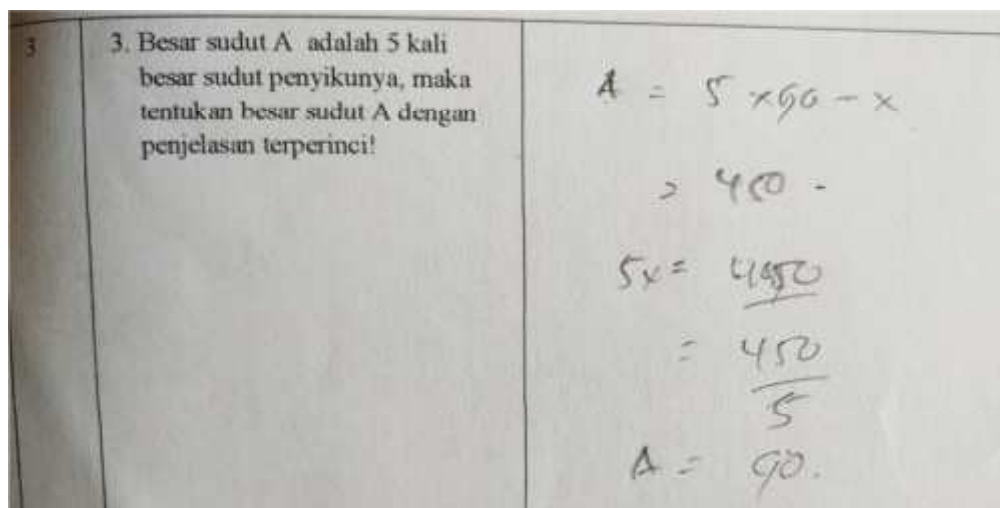 3
3. Besar sudut A adalah 5 kali
besar sudut penyikunya, maka
tentukan besar sudut A dengan
penjelasan terperinci!
A = 5 × 90 - x
= 450 -
5x = 4450
= 450
5
A = 90.